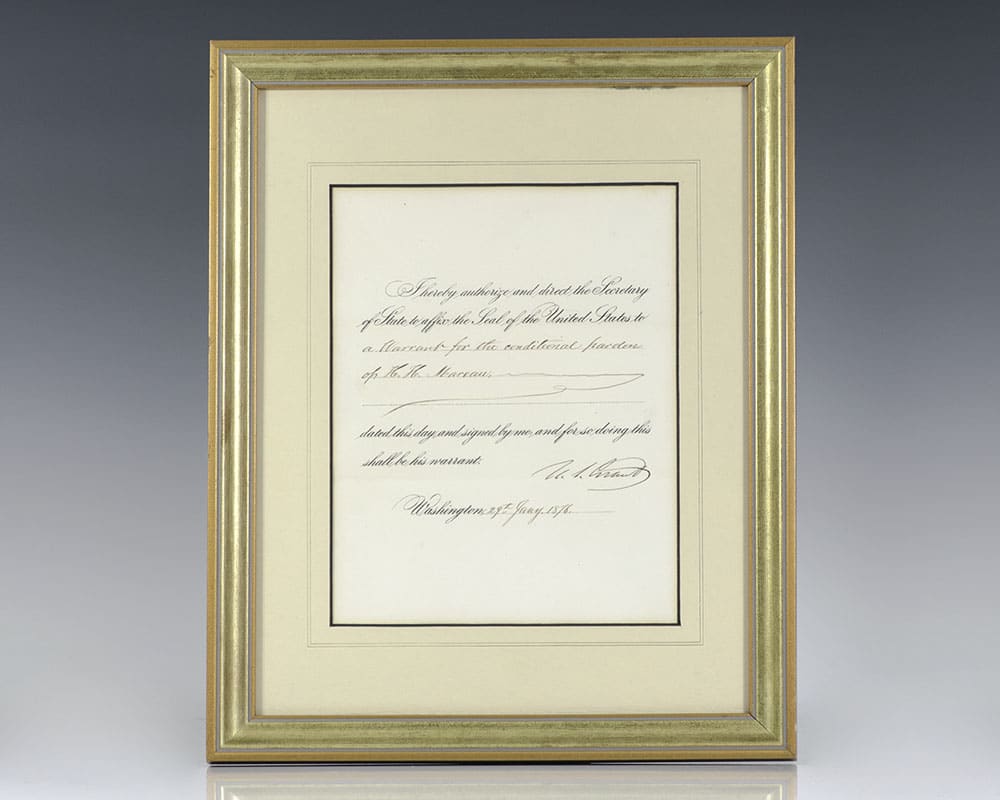 I hereby authorize and direct the Secretary
of State to affix the Seal of the United States to
a Warrant for the conditional pardon
of H. H. Mareau.
dated this day, and signed by me, and for so doing this
shall be his warrant.
U. S. Grant
Washington, 29th Jany. 1876